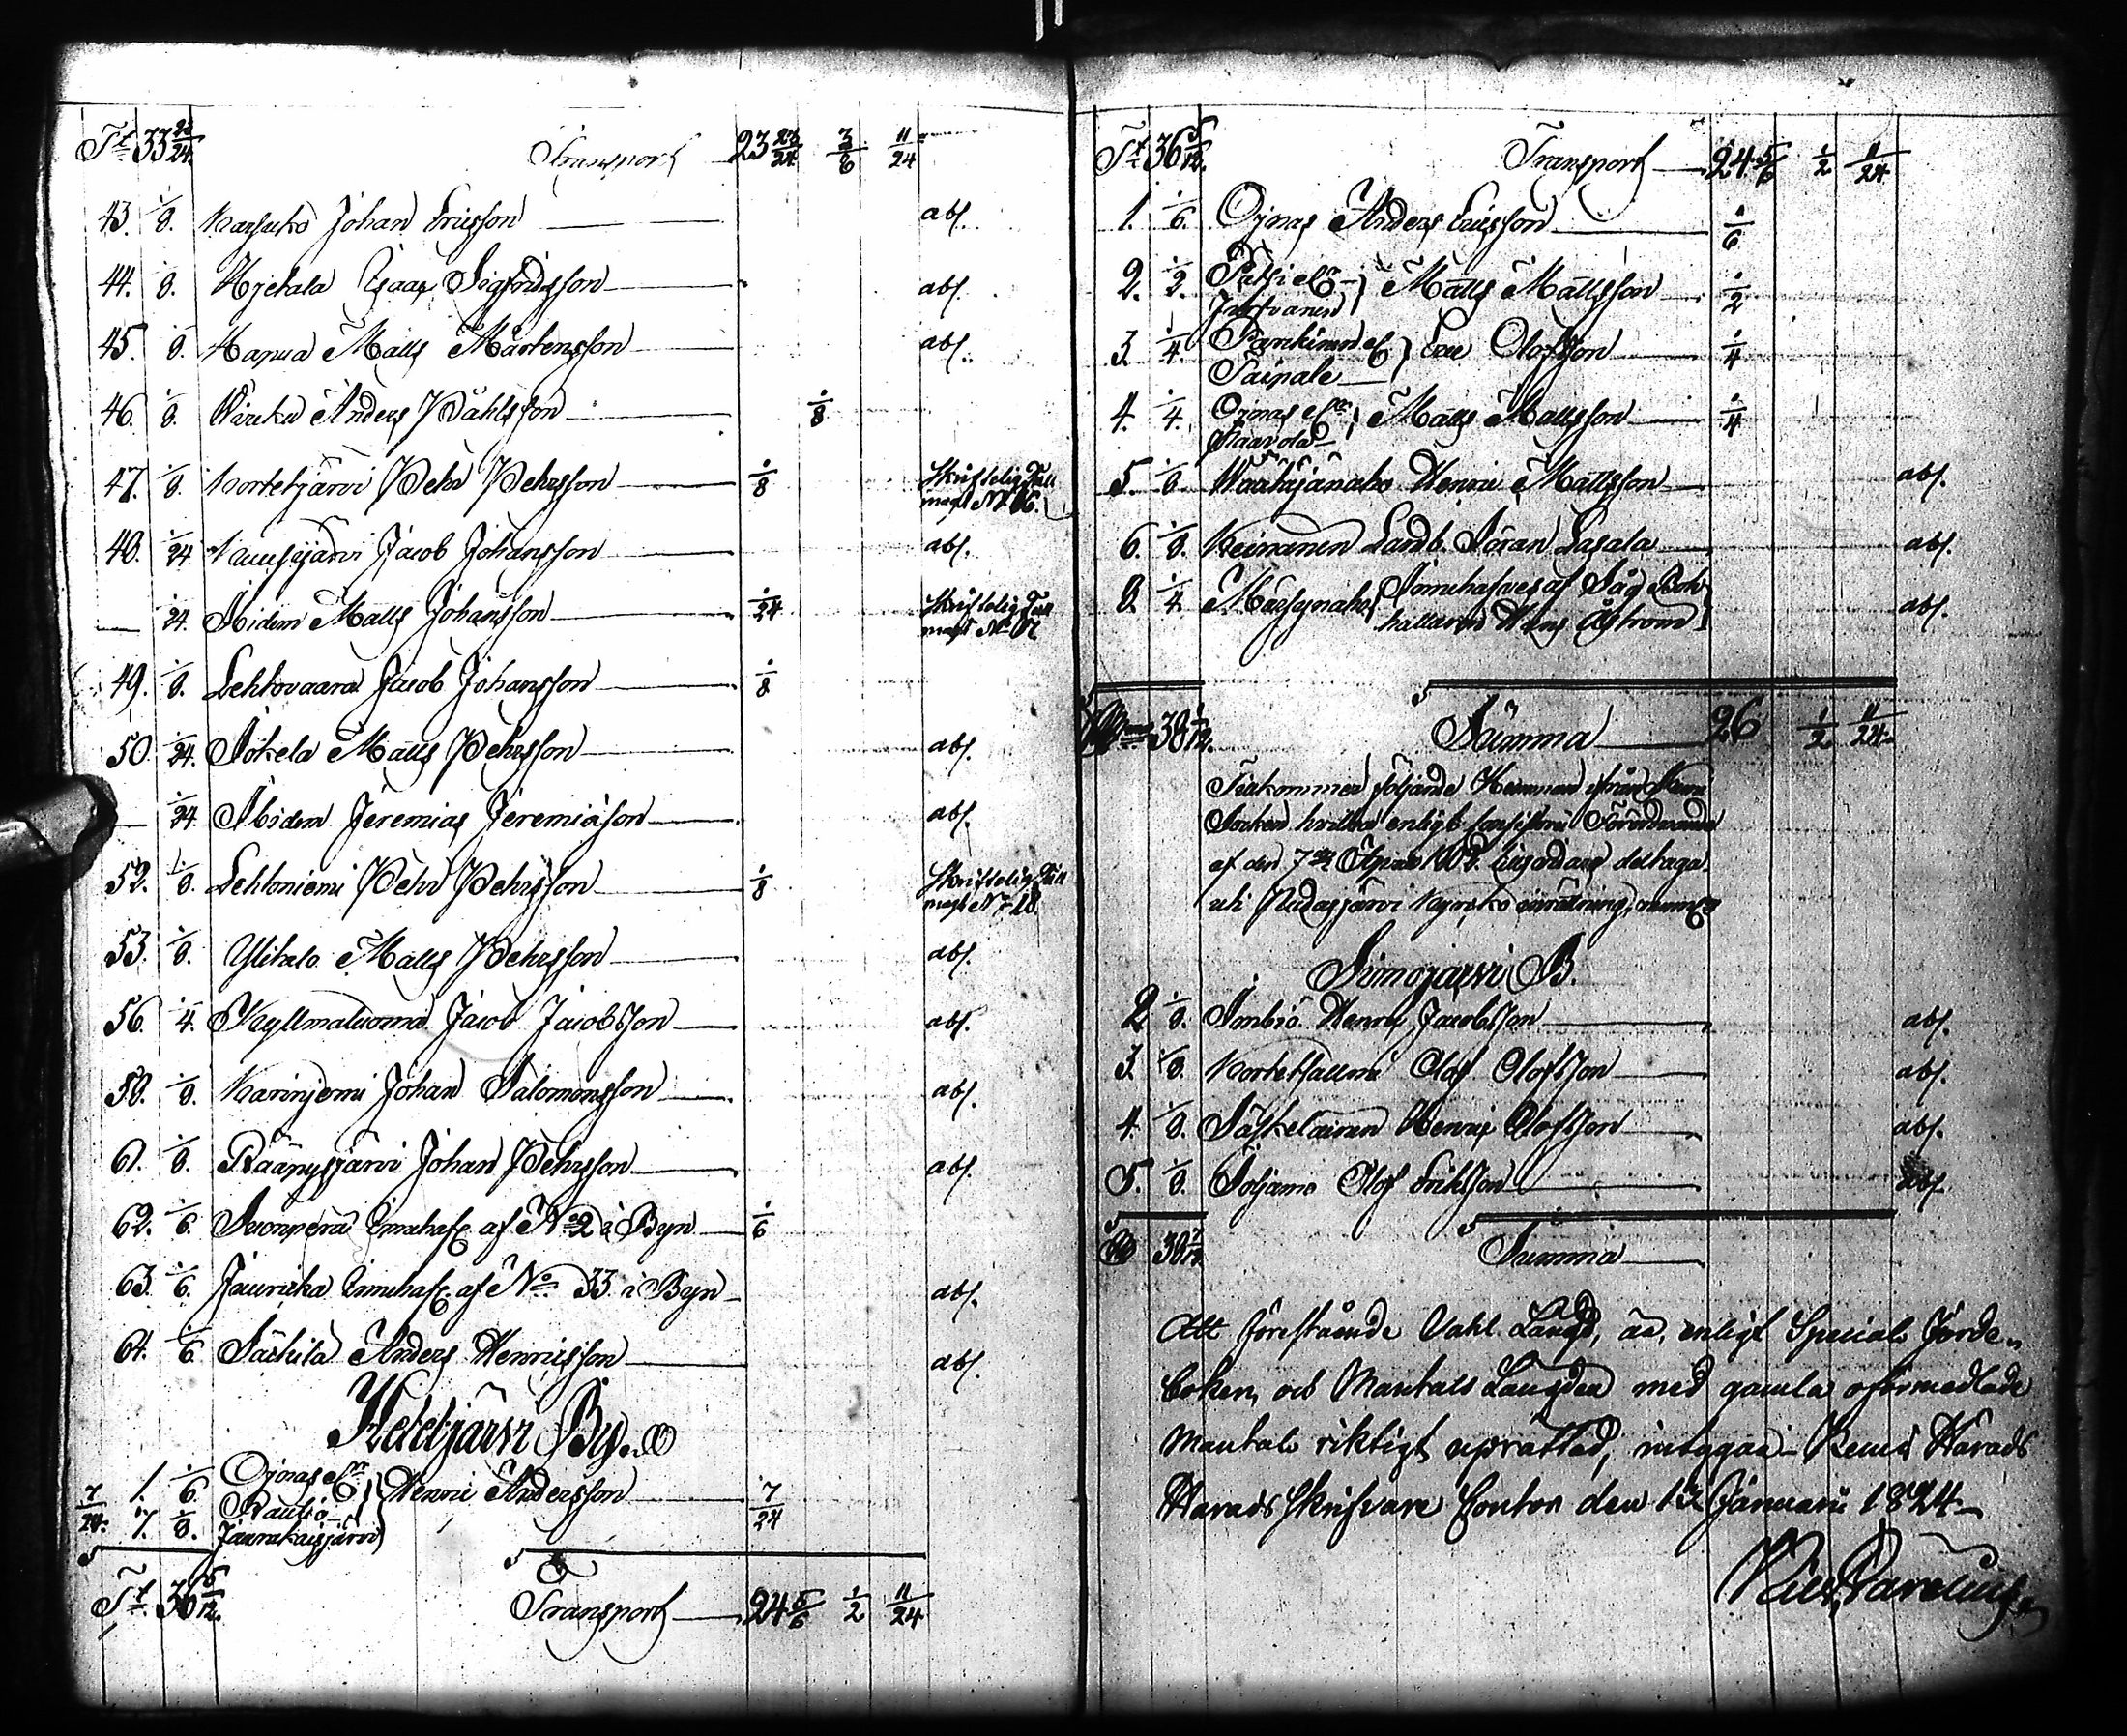 Tt 33 23/24 Transport 23 23/24 3/8 11/24
43. 1/8. Karsuko Johan Ericsson abs.
44. 1/8. Hjetala Isaac Sigfridsson abs.
45. 1/8. Hapua Matts Mårtensson abs.
46. 1/8. Anders Påhlsson 1/8
47. 1/8. Kortetjärvi Pehr Pehrsson 1/8 Skriftelig Full
magt No 16.
48. 1/24 Kuusijärvi Jacob Johansson abs.
1/24. Ibidem Matts Johansson 1/24 Skriftelig Full
magt No 17
49. 1/8. Lehtovaara Jacob Johansson 1/8
50. 1/24. Jokela Matts Pehrsson abs.
1/24. Ibidem Jeremias Jeremiæson abs.
52. 1/8. Lehtoniemi Pehr Pehrsson 1/8 Skriftelig Full
magt No 18.
53. 1/8. Ylitalo Matts Pehrsson abs.
56. 1/4. Kyllmaluoma Jacob Jacobsson abs.
58. 1/8. Karinjemi Johan Salomonsson abs.
61. 1/8. Räänysjärvi Johan Pehrsson abs.
62. 1/6. Suonperä Innehafs af No 2 i Byn 1/6
63. 1/6. Jaurucka Innehafs af No 33 i Byn abs.
64. 1/6 Särkilä Anders Henricsson abs.
Hetetjärvi By.
1. 1/6 Ojonas et
7/24. 7. 1/8. Rautio Henric Andersson 7/24
Jaurakaisjärvi
Tt 36 5/12. Transport 24 5/6 1/2 11/24
Tt 36 5/12. Transport 24 5/6 1/2 11/24
1. 1/6. Ojonas Anders Ericsson 1/6
2. 1/2. Pätsi et Matts Mattsson 1/2
3. 1/4. Eric Olofsson 1/4
Taipale
4. 1/4. Ojonas et Matts Mattsson 1/4
Staavola
5. 1/8 Wäähäjänaho Henric Mattsson abs.
6. 1/8. Keinänen Landb. Göran Lasala abs.
8. 1/4. Marjanaho Innehafves af Såg Bok
hållaren Hans Åström abs.
38 1/12. Summa 26 1/2 11/24
Tillkommer följande Hemman ifrån Kemi
Socken hvilka enligt Consistorii Förordnande
af den 7de April deltaga
uti Pudasjärvi Kyrko inrättning, nemlig
Simojärvi B.
2 1/8. Imbiö Henric Jacobsson abs.
3. 1/8. Kortetsalmi Olof Olofsson abs.
4. 1/8. Säskelainen Henric Olofsson abs.
5. 1/8. Soljamo Olof Eriksson abs.
38 7/12 Summa
Att förestående Vahl Längd, är, enligt Special Jorde-
boken, och Mantals Längden med gamla oförmedlade
Mantal riktigt uprättad, intygar Kemi Härads
Häradsskrifvare Contor den 12 Januarii 1824